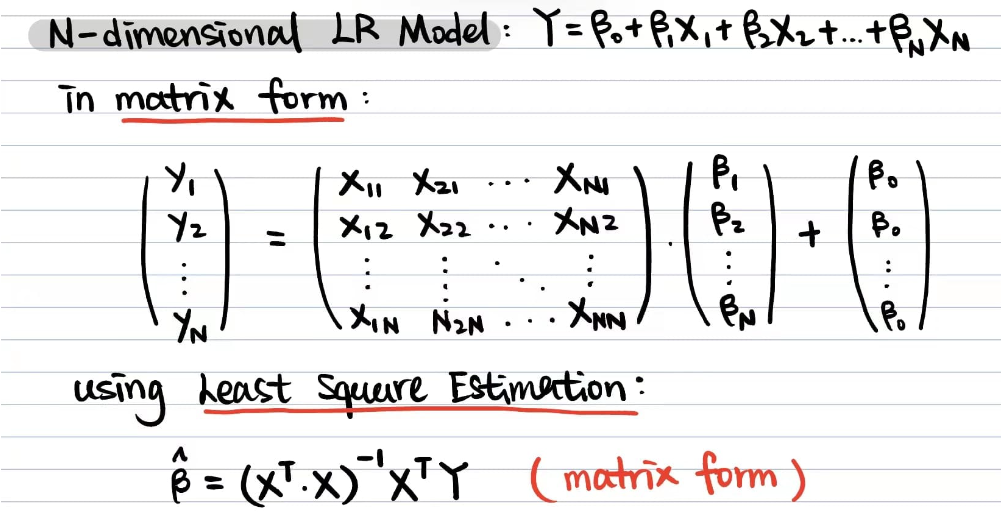 N-dimensional LR Model: Y=β₀+β₁X₁+β₂X₂+...+β_N X_N
in matrix form:
(Y₁ Y₂ ⋮ Y_N) = (X₁₁ X₂₁ ⋯ X_N1
X₁₂ X₂₂ ⋯ X_N2
⋮ ⋮ ⋱ ⋮
X₁N N₂N ⋯ X_NN) · (β₁ β₂ ⋮ β_N) + (β₀ β₀ ⋮ β₀)
using Least Square Estimation:
β̂ = (Xᵀ·X)⁻¹XᵀY (matrix form)